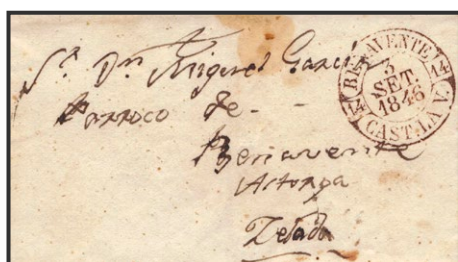 Sr. Dn. Miguel García
Parroco de - -
Benavente
Astorga
BENAVENTE
14
14
3
SET.
1846
CAST.LA V.